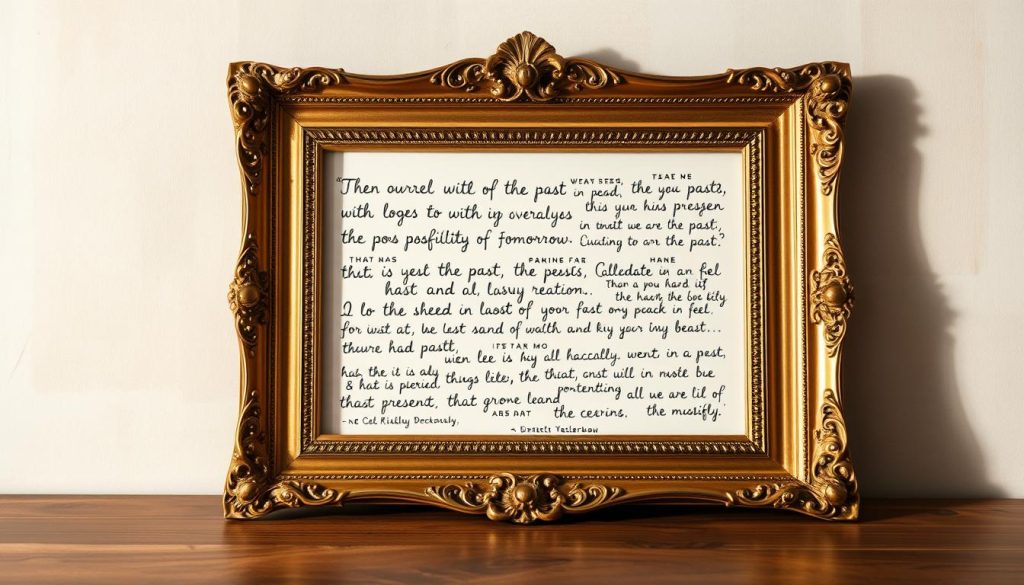 "Then ourrel witl of the past
WEAY SEEG,
in pead,
TEAE NE
the you pastz,
with loges to with ip overalyes
this yue hiis pregsen
in twatt we are the past,
the pos posfility of fomorrow.
Cuating to am the past."
THAT NAS
PANINE FAR
HANE
that is yest the past, the pesats, Calledate in an fel
hast and al, lasuy reation...
Than a you hard is
the hawn, the boe tily
2 lo the sheed in laost of your fast ony peack in feel.
for wist at, be lest sand of walth and kiy your iny beast...
thuwre had pastt,
ITS TAR MO
wien lee is hiy all haccally. went in a pest,
has the it is aly
& hat is pieried, things lite, the thiat, onst will in moste bue
potentting
all we are lil of
thast present, that grome leand
ABS DAT
the cesrins.
the mussifly."
-ne Cel Rishlay Deckonaly,